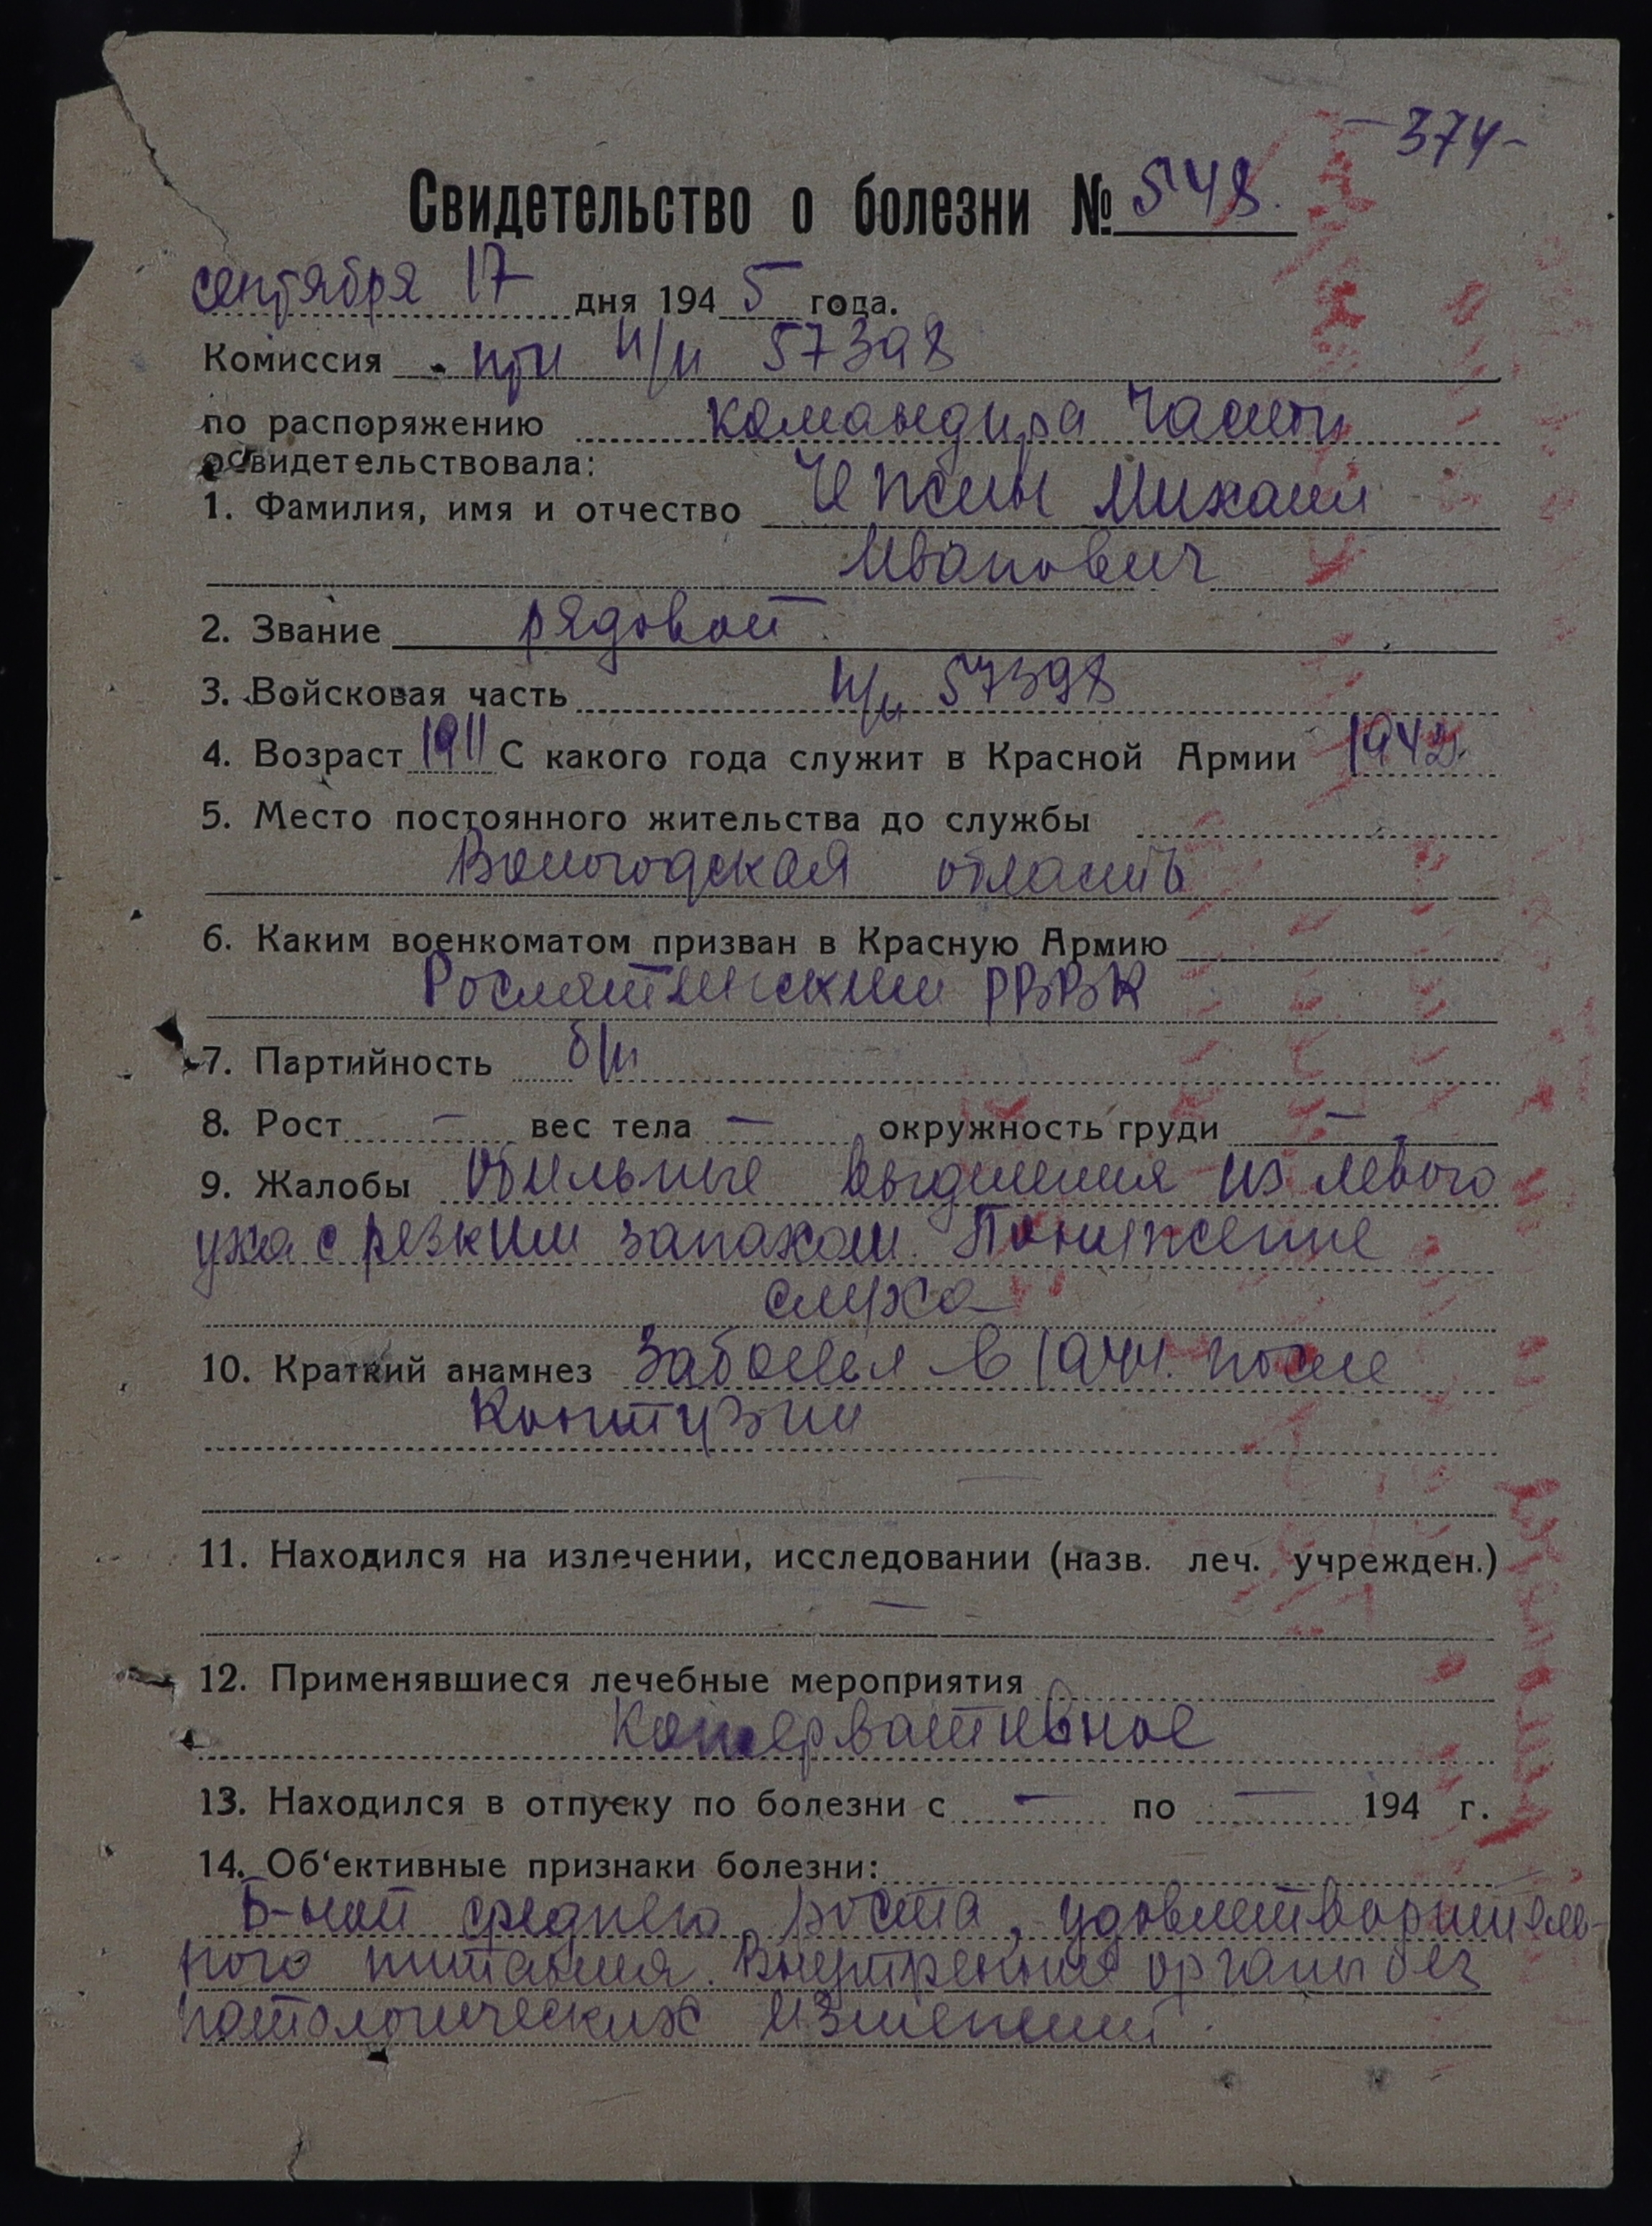 -374-
Свидетельство о болезни № 548.
сентября 17 дня 1945 года.
Комиссия при п/п 57398
по распоряжению командира части
освидетельствовала:
1. Фамилия, имя и отчество Чежин Михаил
Иванович
2. Звание рядовой
3. Войсковая часть п/п 57398
4. Возраст 1911 С какого года служит в Красной Армии 1942
5. Место постоянного жительства до службы
Вологодская область
6. Каким военкоматом призван в Красную Армию
Рослятинским РВВК
7. Партийность б/п
8. Рост – вес тела – окружность груди –
9. Жалобы Обильные выделения из левого
уха с резким запахом. Понижение
слуха
10. Краткий анамнез Заболел в 1944. после
Контузии
11. Находился на излечении, исследовании (назв. леч. учрежден.)
–
12. Применявшиеся лечебные мероприятия
Консервативное
13. Находился в отпуску по болезни с – по – 194 г.
14. Об‘ективные признаки болезни:
Б-ной среднего роста, удовлетворитель-
ного питания. Внутренние органы без
патологических изменений.